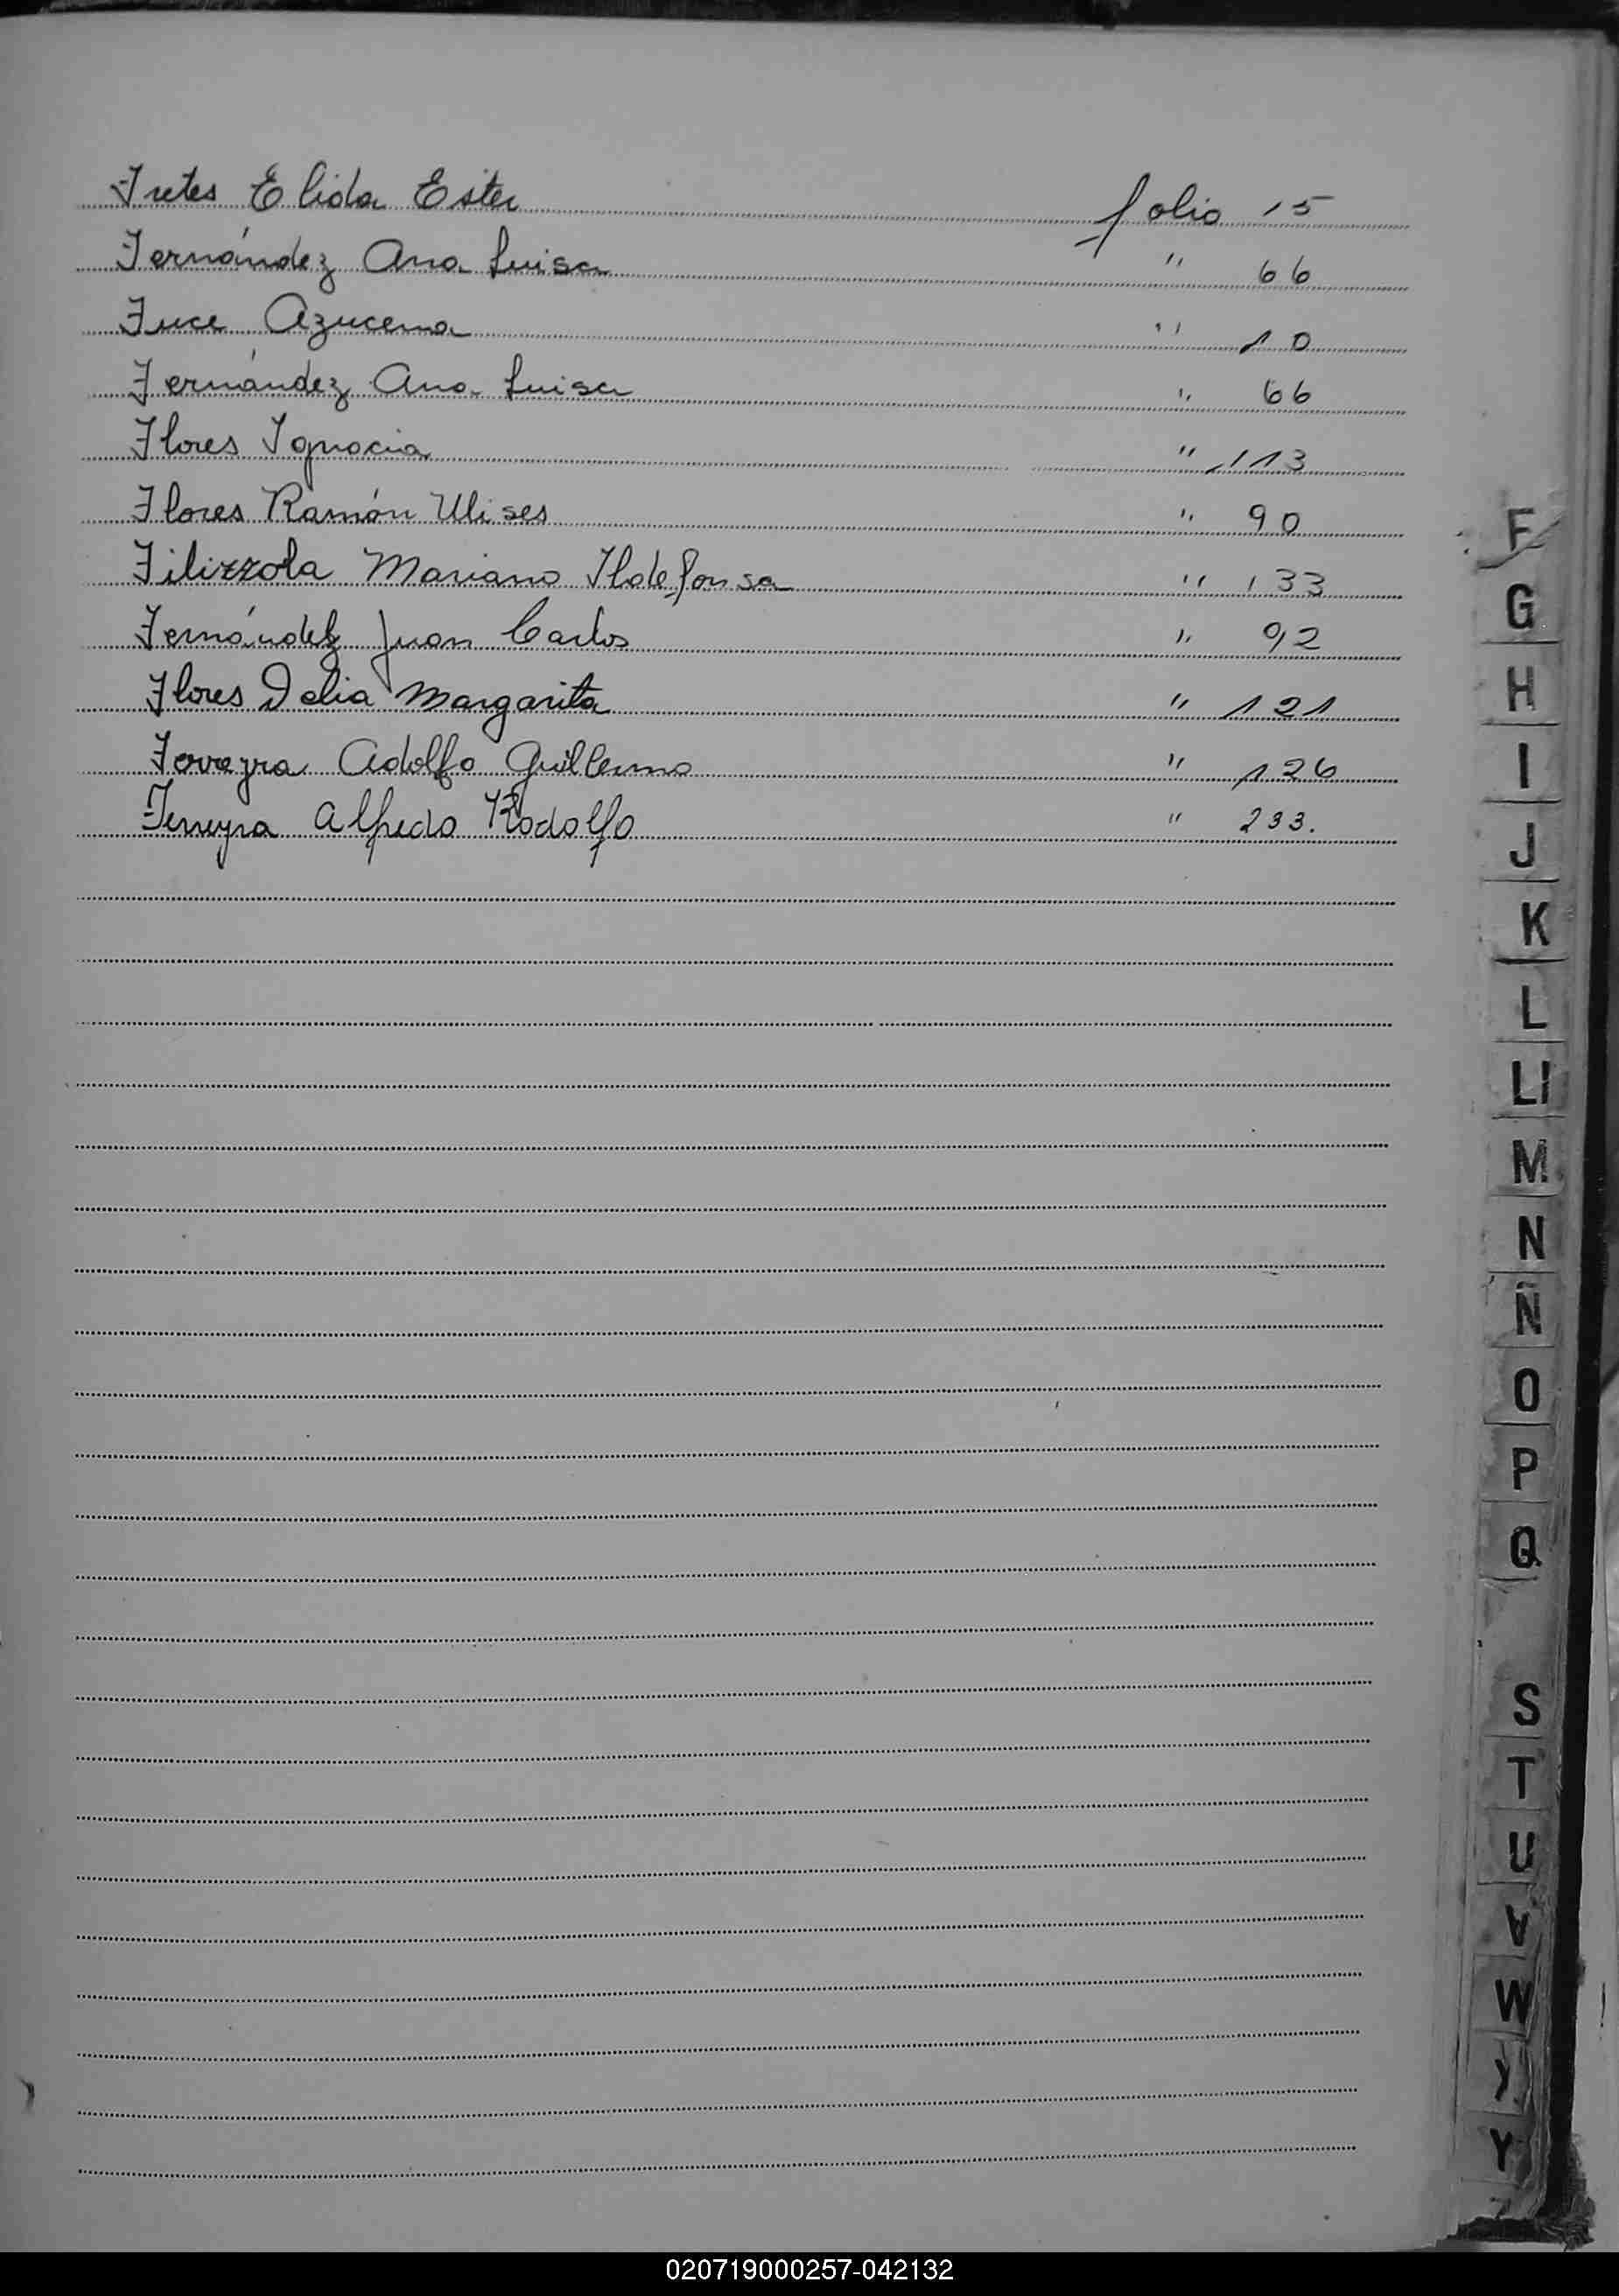 Fretes Elida Ester folio 15
Fernández Ana Luisa " 66
Fuce Azucena " 10
Fernández Ana Luisa " 66
Flores Ignacia " 113
Flores Ramón Ulises " 90
Filizzola Mariano Ildefonsa " 133
Fernández Juan Carlos " 92
Flores Delia Margarita " 121
Ferreyra Adolfo Guillermo " 126
Ferreyra Alfredo Rodolfo " 233.
F
G
H
I
J
K
L
Ll
M
N
Ñ
O
P
Q
S
T
U
V
W
Y
020719000257-042132